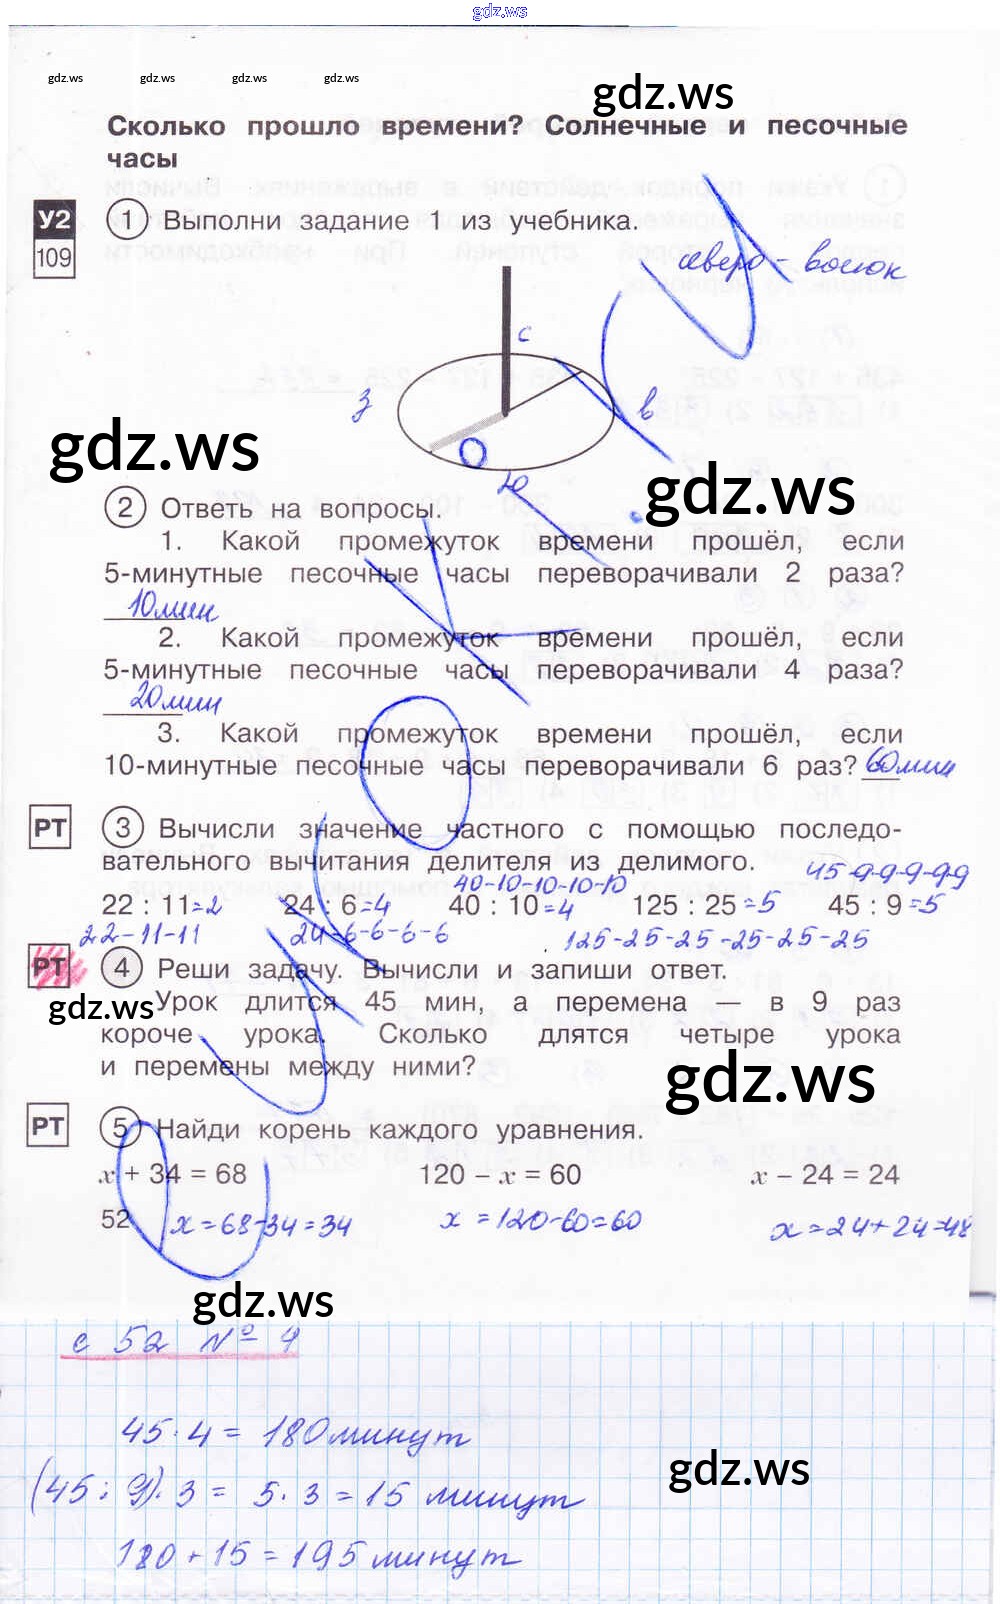 gdz.ws
gdz.ws gdz.ws gdz.ws gdz.ws
gdz.ws
Сколько прошло времени? Солнечные и песочные
часы
У2
109
1 Выполни задание 1 из учебника.
северо - восток
С
З
В
Ю
gdz.ws
gdz.ws
2 Ответь на вопросы.
1. Какой промежуток времени прошёл, если
5-минутные песочные часы переворачивали 2 раза?
10мин
2. Какой промежуток времени прошёл, если
5-минутные песочные часы переворачивали 4 раза?
20мин
3. Какой промежуток времени прошёл, если
10-минутные песочные часы переворачивали 6 раз? 60мин
РТ
3 Вычисли значение частного с помощью последо-
вательного вычитания делителя из делимого.
40-10-10-10-10 45-9-9-9-9-9
22 : 11=2 24 : 6=4 40 : 10=4 125 : 25=5 45 : 9=5
22-11-11 24-6-6-6-6 125-25-25-25-25-25
РТ
4 Реши задачу. Вычисли и запиши ответ.
gdz.ws
Урок длится 45 мин, а перемена — в 9 раз
короче урока. Сколько длятся четыре урока
и перемены между ними?
gdz.ws
РТ
5 Найди корень каждого уравнения.
x + 34 = 68 120 – x = 60 x – 24 = 24
52 x=68-34=34 x=120-60=60 x=24+24=48
gdz.ws
с 52 № 4
45·4= 180минут
(45:9)·3= 5·3=15 минут
gdz.ws
180+15=195минут